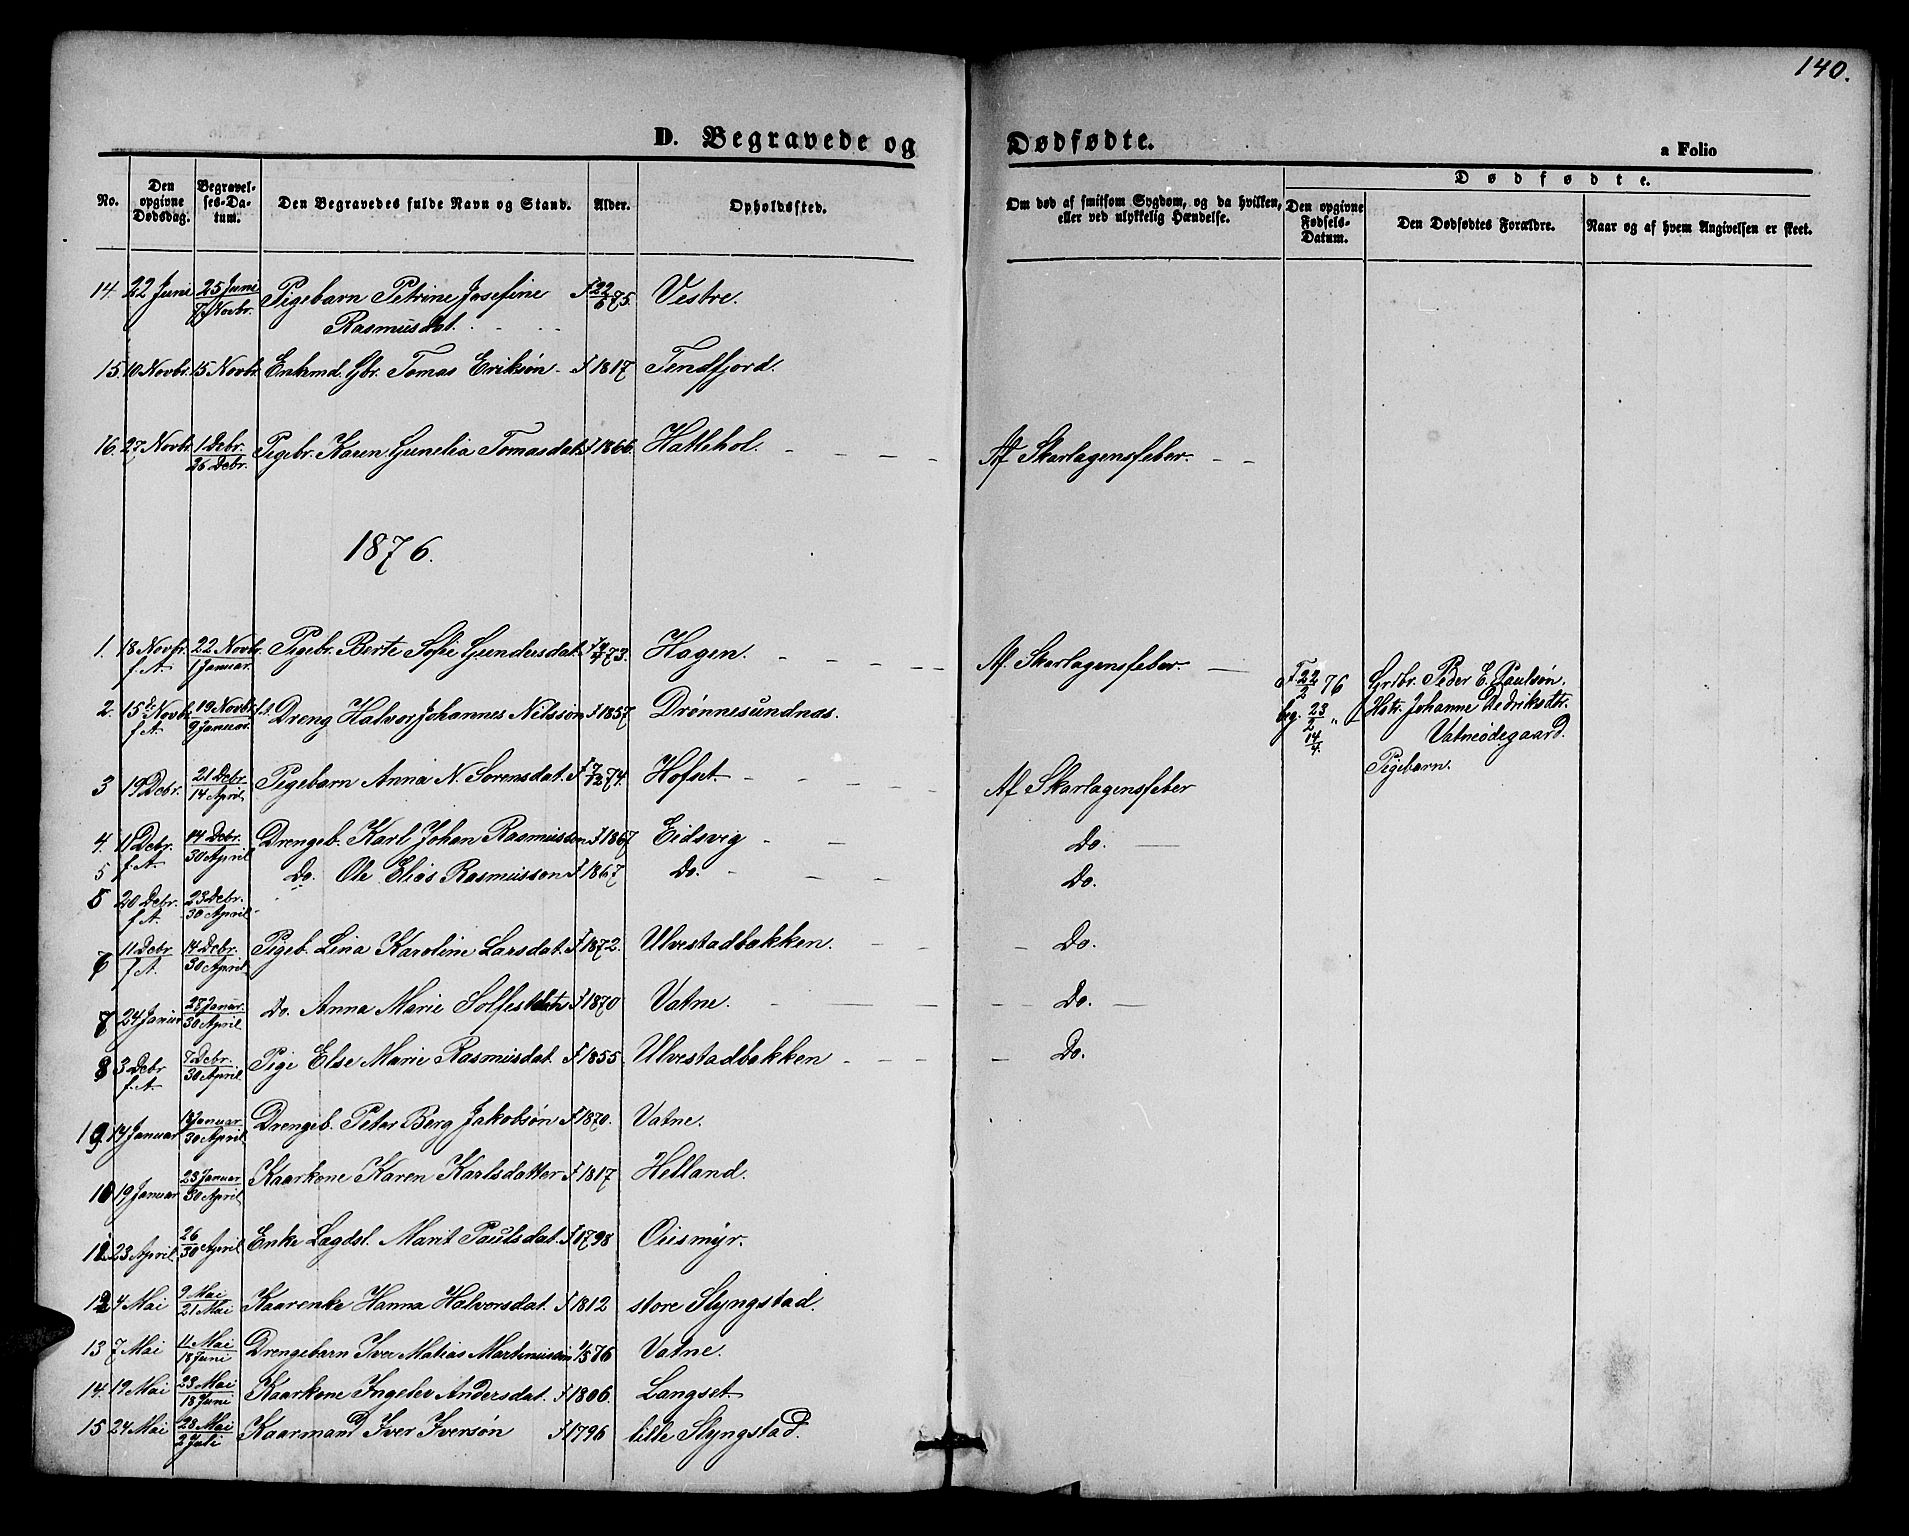 140.
D. Begravede og Dødfødte.
a Folio
No.
Den opgivne Dødsdag.
Begravelses-Datum.
Den Begravedes fulde Navn og Stand.
Alder.
Opholdssted.
Om død af smitsom Sygdom, og da hvilken, eller ved ulykkelig Hændelse.
Dødfødte.
Den opgivne Fødsels-Datum.
Den Dødfødtes Forældre.
Naar og af hvem Angivelsen er skeet.
14 22 Juni 25 Juni / 7 Novbr. Pigebarn Petrine Josefine F 22/6 75. Vestre.
Rasmusdat.
15. 10 Novbr. 15 Novbr. Enkemd. Gbr. Tomas Eriksøn F 1817 Tendfjord.
16. 27 Novbr. 1 Debr. / 26 Debr. Pigebr. Karen Gunelia Tomasdat. F 1866. Hattehol. Af Skarlagensfeber.
1876.
1. 18 Novbr. f. A. 22 Novbr. / 1 Januar. Pigebr. Berte Sofie Gundersdat. 73. Hagen. Af Skarlagensfeber.
2. 15 Novbr. f. A. 19 Novbr. / 9 Januar. Dreng Halvor Johannes Nilssøn F 1857 Drønnesundnas.
3 19 Debr. 21 Debr. / 14 April Pigebarn Anna N. Sørensdat. F 7/12 74. Hofset. Af Skarlagensfeber
4. 11 Debr. f. A. 14 Debr. / 30 April Drengeb. Karl Johan Rasmussøn F 1867 Eidsvig Do.
5 Do. Ole Elias Rasmussøn F 1867 Do. Do.
5 20 Debr. f. A. 23 Debr. / 30 April
6 11 Debr f. A. 14 Debr. / 30 April Pigeb. Lina Karoline Larsdat. F 1872. Ulvestadbakken. Do.
7 24 Januar 28 Januar. / 30 April. Do. Anna Marie Solfestdatr F 1870 Vatne. Do.
8 3 Debr f. A. 7 Debr. / 30 April. Pige Else Marie Rasmusdat. F 1855. Ulvestadbakken Do.
9 14 Januar 18 Januar / 30 April. Drengeb. Peter Berg Jakobsøn F 1870. Vatne.
10 19 Januar 23 Januar / 30 April Kaarkone Karen Karlsdatter F 1817 Helland.
11 23 April 26 / 30 April Enke Lægdsl. Marit Paulsdat. F 1798 Oiesmyr.
12 4 Mai 9 Mai / 21 Mai Kaarenke Hanna Halvorsdat. F 1812 store Slyngstad.
13 7 Mai 11 Mai / 18 Juni Drengebarn Iver Matias Martinussøn 1/5 76 Vatne.
14. 19 Mai 23 Mai / 18 Juni Kaarkone Ingelev Andersdat. F 1806. Langset.
15 24 Mai 28 Mai / 2 Juli Kaarmand Iver Iversøn F 1796 lille Slyngstad.
F 22/2 76 Grdbr. Peder E. Paulsøn.
beg. 23/2 " Hstr. Johanne Dedriksdtr.
14/4. Vatneødegaard.
Pigebarn.